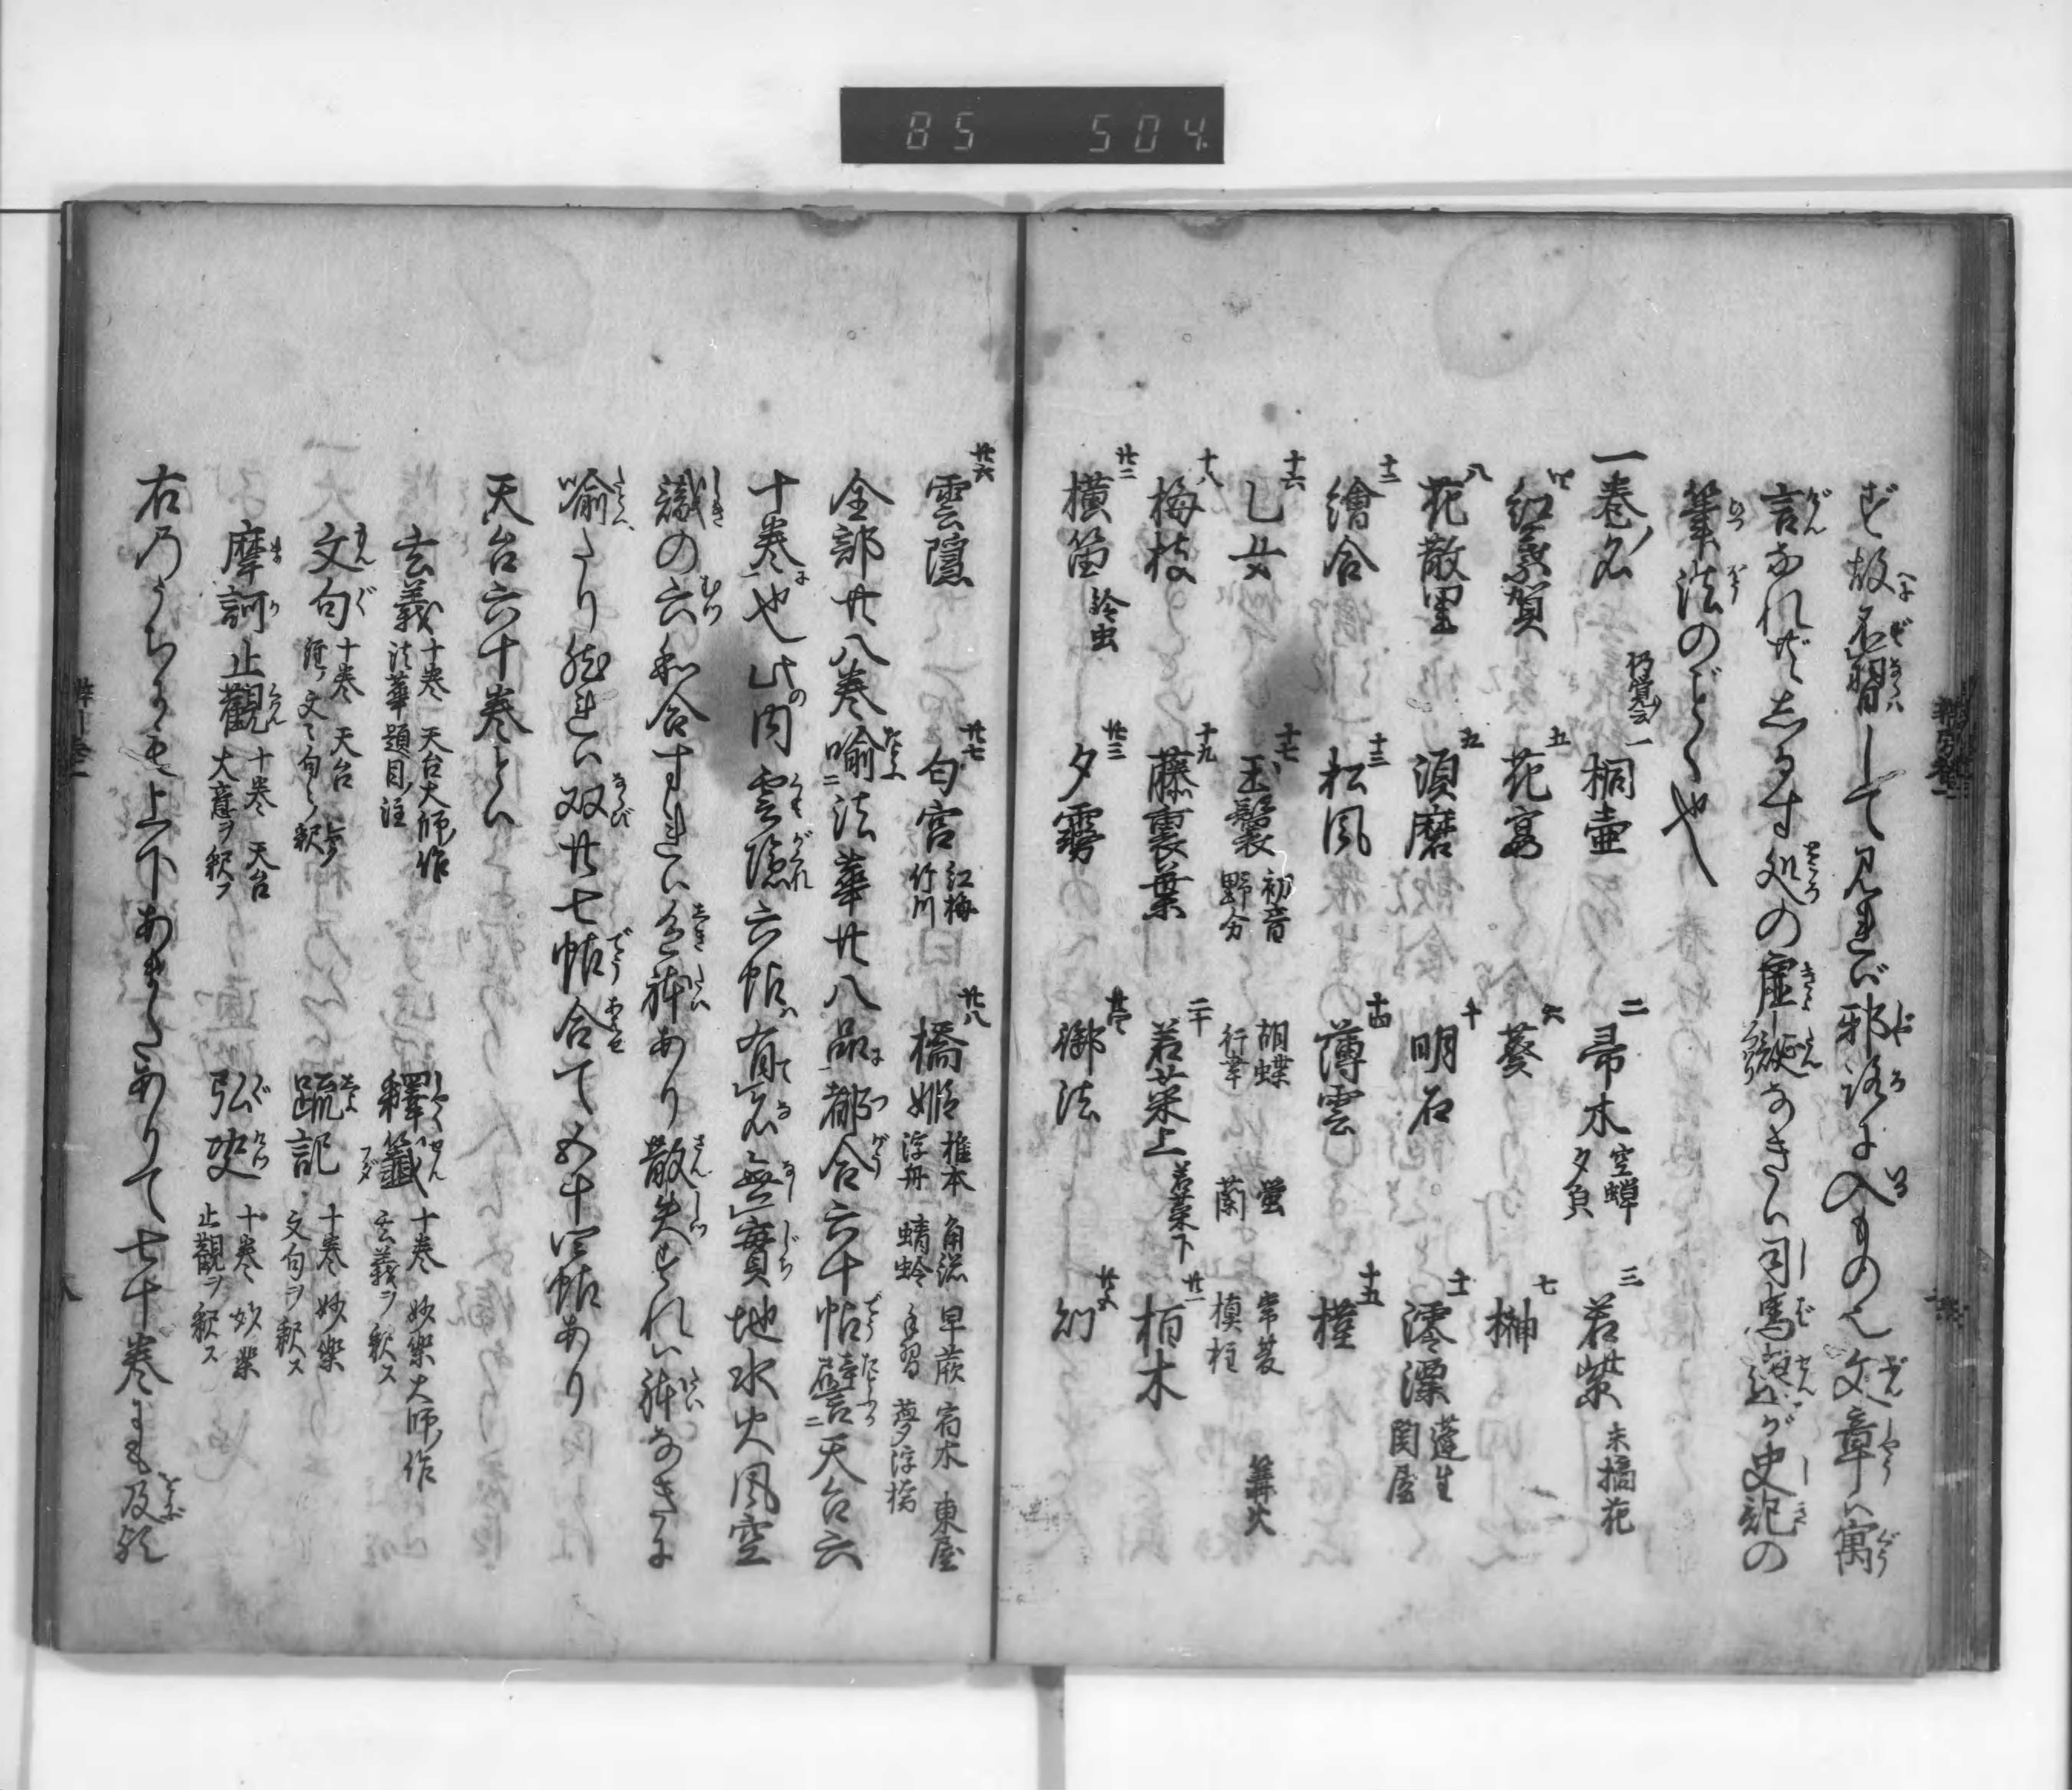 85 504
ず故に名習して見れば邪路に入もの也文章ハ寓
言なれバ尤しるす処の虚誕なきハ司馬遷が史記の
筆法のごとく也
一巻ノ名 一桐壺 二帚木 空蝉 夕㒵 三若紫 末摘花
四紅葉賀 五花宴 六葵 七榊
八花散里 九須磨 十明石 十一澪漂 蓬生 関屋
十二繪合 十三松風 十四薄雲 十五槿
十六乙女 十七玉鬘 初音 胡蝶 螢 常夏 篝火 野分 行幸 蘭 槙柱
十八梅枝 十九藤裏葉 二十若菜上 若菜下 廿一柏木
廿二横笛 鈴虫 廿三夕霧 廿四御法 廿五幻
廿六雲隠 廿七匂宮 紅梅 竹川 廿八橋姫 椎本 角総 早蕨 宿木 東屋 浮舟 蜻蛉 手習 夢浮橋
全部廿八巻喩ニ法華廿八品に都合六十帖譬ニ天台六
十巻に也此内雲隠六帖ハ有名無實地水火風空
識の六和合すれハ色躰あり散失すれハ躰なきに
喩たり然れハ双廿七帖合て五十四帖あり
天台六十巻とハ
玄義 十巻 天台大師ノ作 法華題目ノ注 釋籤 十巻 妙樂大師ノ作 玄義ヲ釈ス
文句 十巻 天台 文々句々ノ釈 疏記 十巻 妙樂 文句ヲ釈ス
摩訶止觀 十巻 天台 大意ヲ釈ス 弘决 十巻 妙楽 止觀ヲ釈ス
右のうちにも上下あまたありて七十巻にも及